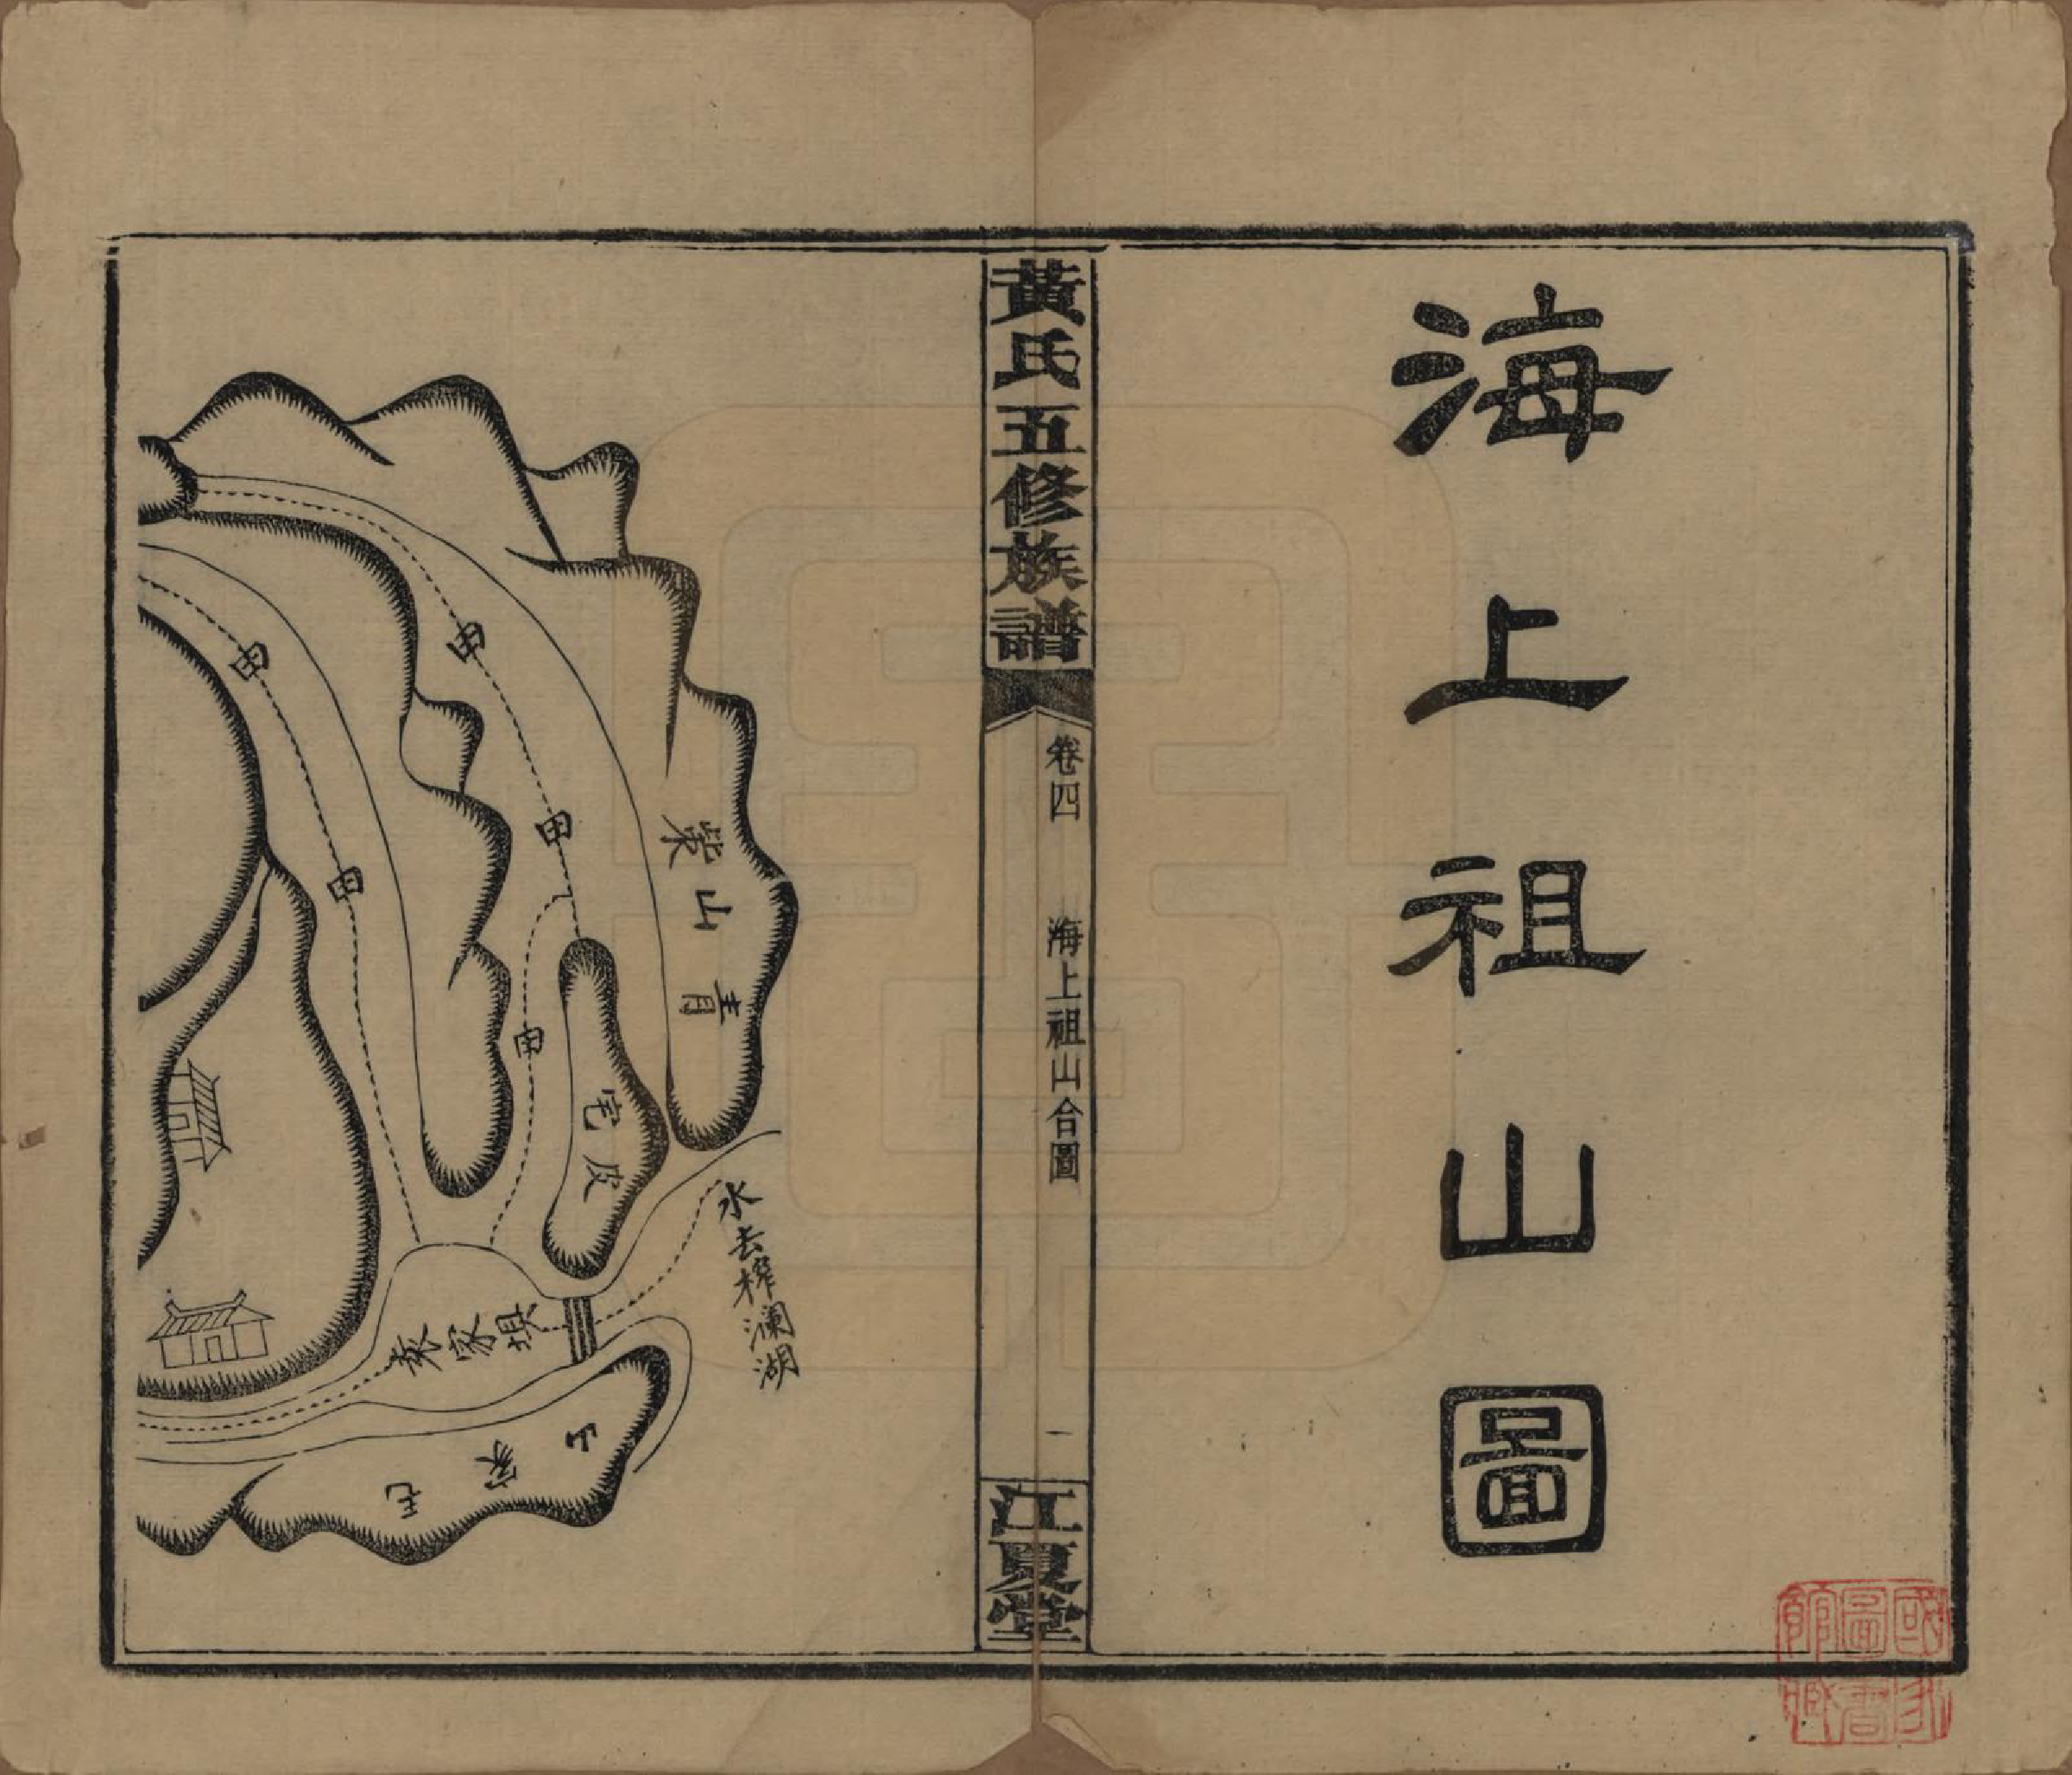 海上祖山圖
黃氏五修族譜
卷四
海上祖山合圖
一
江夏堂
柴山青
宅皮
水去樟澜湖
秦家垻
毛家山
田
田
田
田
田
國家圖書館藏